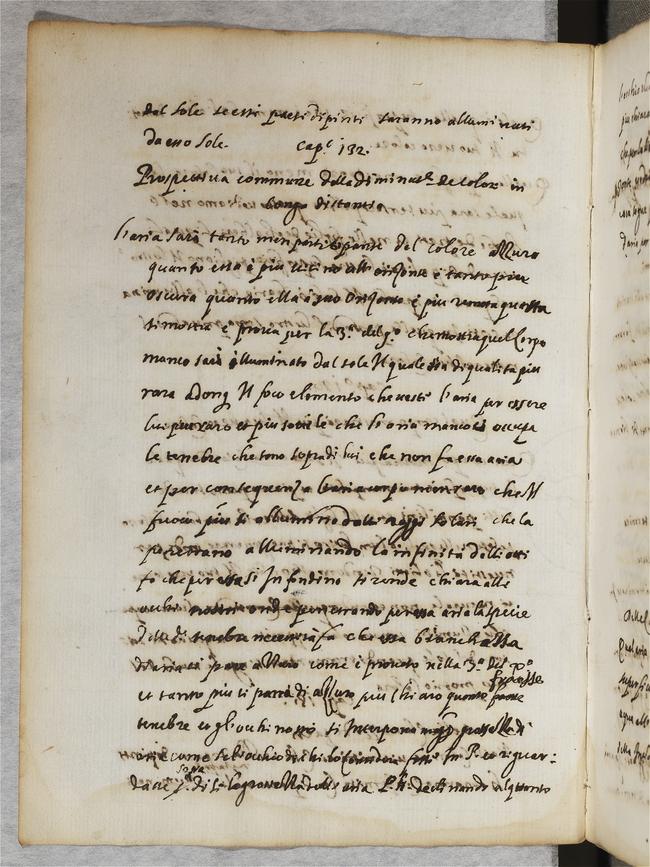 dal sole se essi paesi dipinti saranno alluminati
da esso sole. Cap.º 132.
Prospettiua commune della diminut.e de colori in
longa distantia
L'aria sarà tanto men partecipante del colore Azzuro
quanto essa è piu uicina all'orizonte è tanto piu
oscura quanto ella à suo Orizonte è piu remota questo
si mostra è proua per la 3.a del 9.o che mostra quel Corpo
manco sarà illuminato dal sole Il quale sia di qualità piu
rara Adonq Il foco elemento che ueste l'aria per essere
lui piu raro et piu sottile che l'aria manco ci occupa
le tenebre che sono sopra di lui che non fa essa aria
et per consequenza l'aria corpo men raro che Il
fuoco piu si allumino dalli raggi solari che la
penetrano alluminando la infinità delli ato
mi che per essa si Infondino si rende chiara alli
occhi nostri onde penetrando per essa aria la spetie
delle tenebre necessita fa che essa bianchezza
di aria ci pare Azzuro come è prouato nella 3.a del po
et tanto piu ci parrà di Azzuro piu chiaro quanto
fussesse
tenebre et gli occhi nostri si Interponi magg. grossezza di
aria come se l'occhio di chi lo considera fusse In P. et riguar-
sopra
dasse di se le grossezza dell'aria declinando alquanto